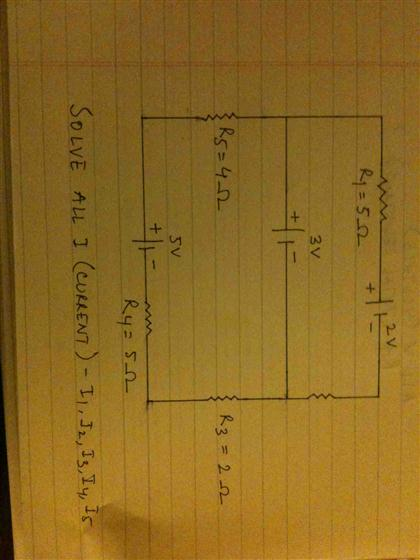 R1 = 5Ω
2V
+ -
3V
+ -
R5 = 4Ω
R3 = 2Ω
5V
+ -
R4 = 5Ω
SOLVE ALL I (CURRENT) - I1, I2, I3, I4, I5